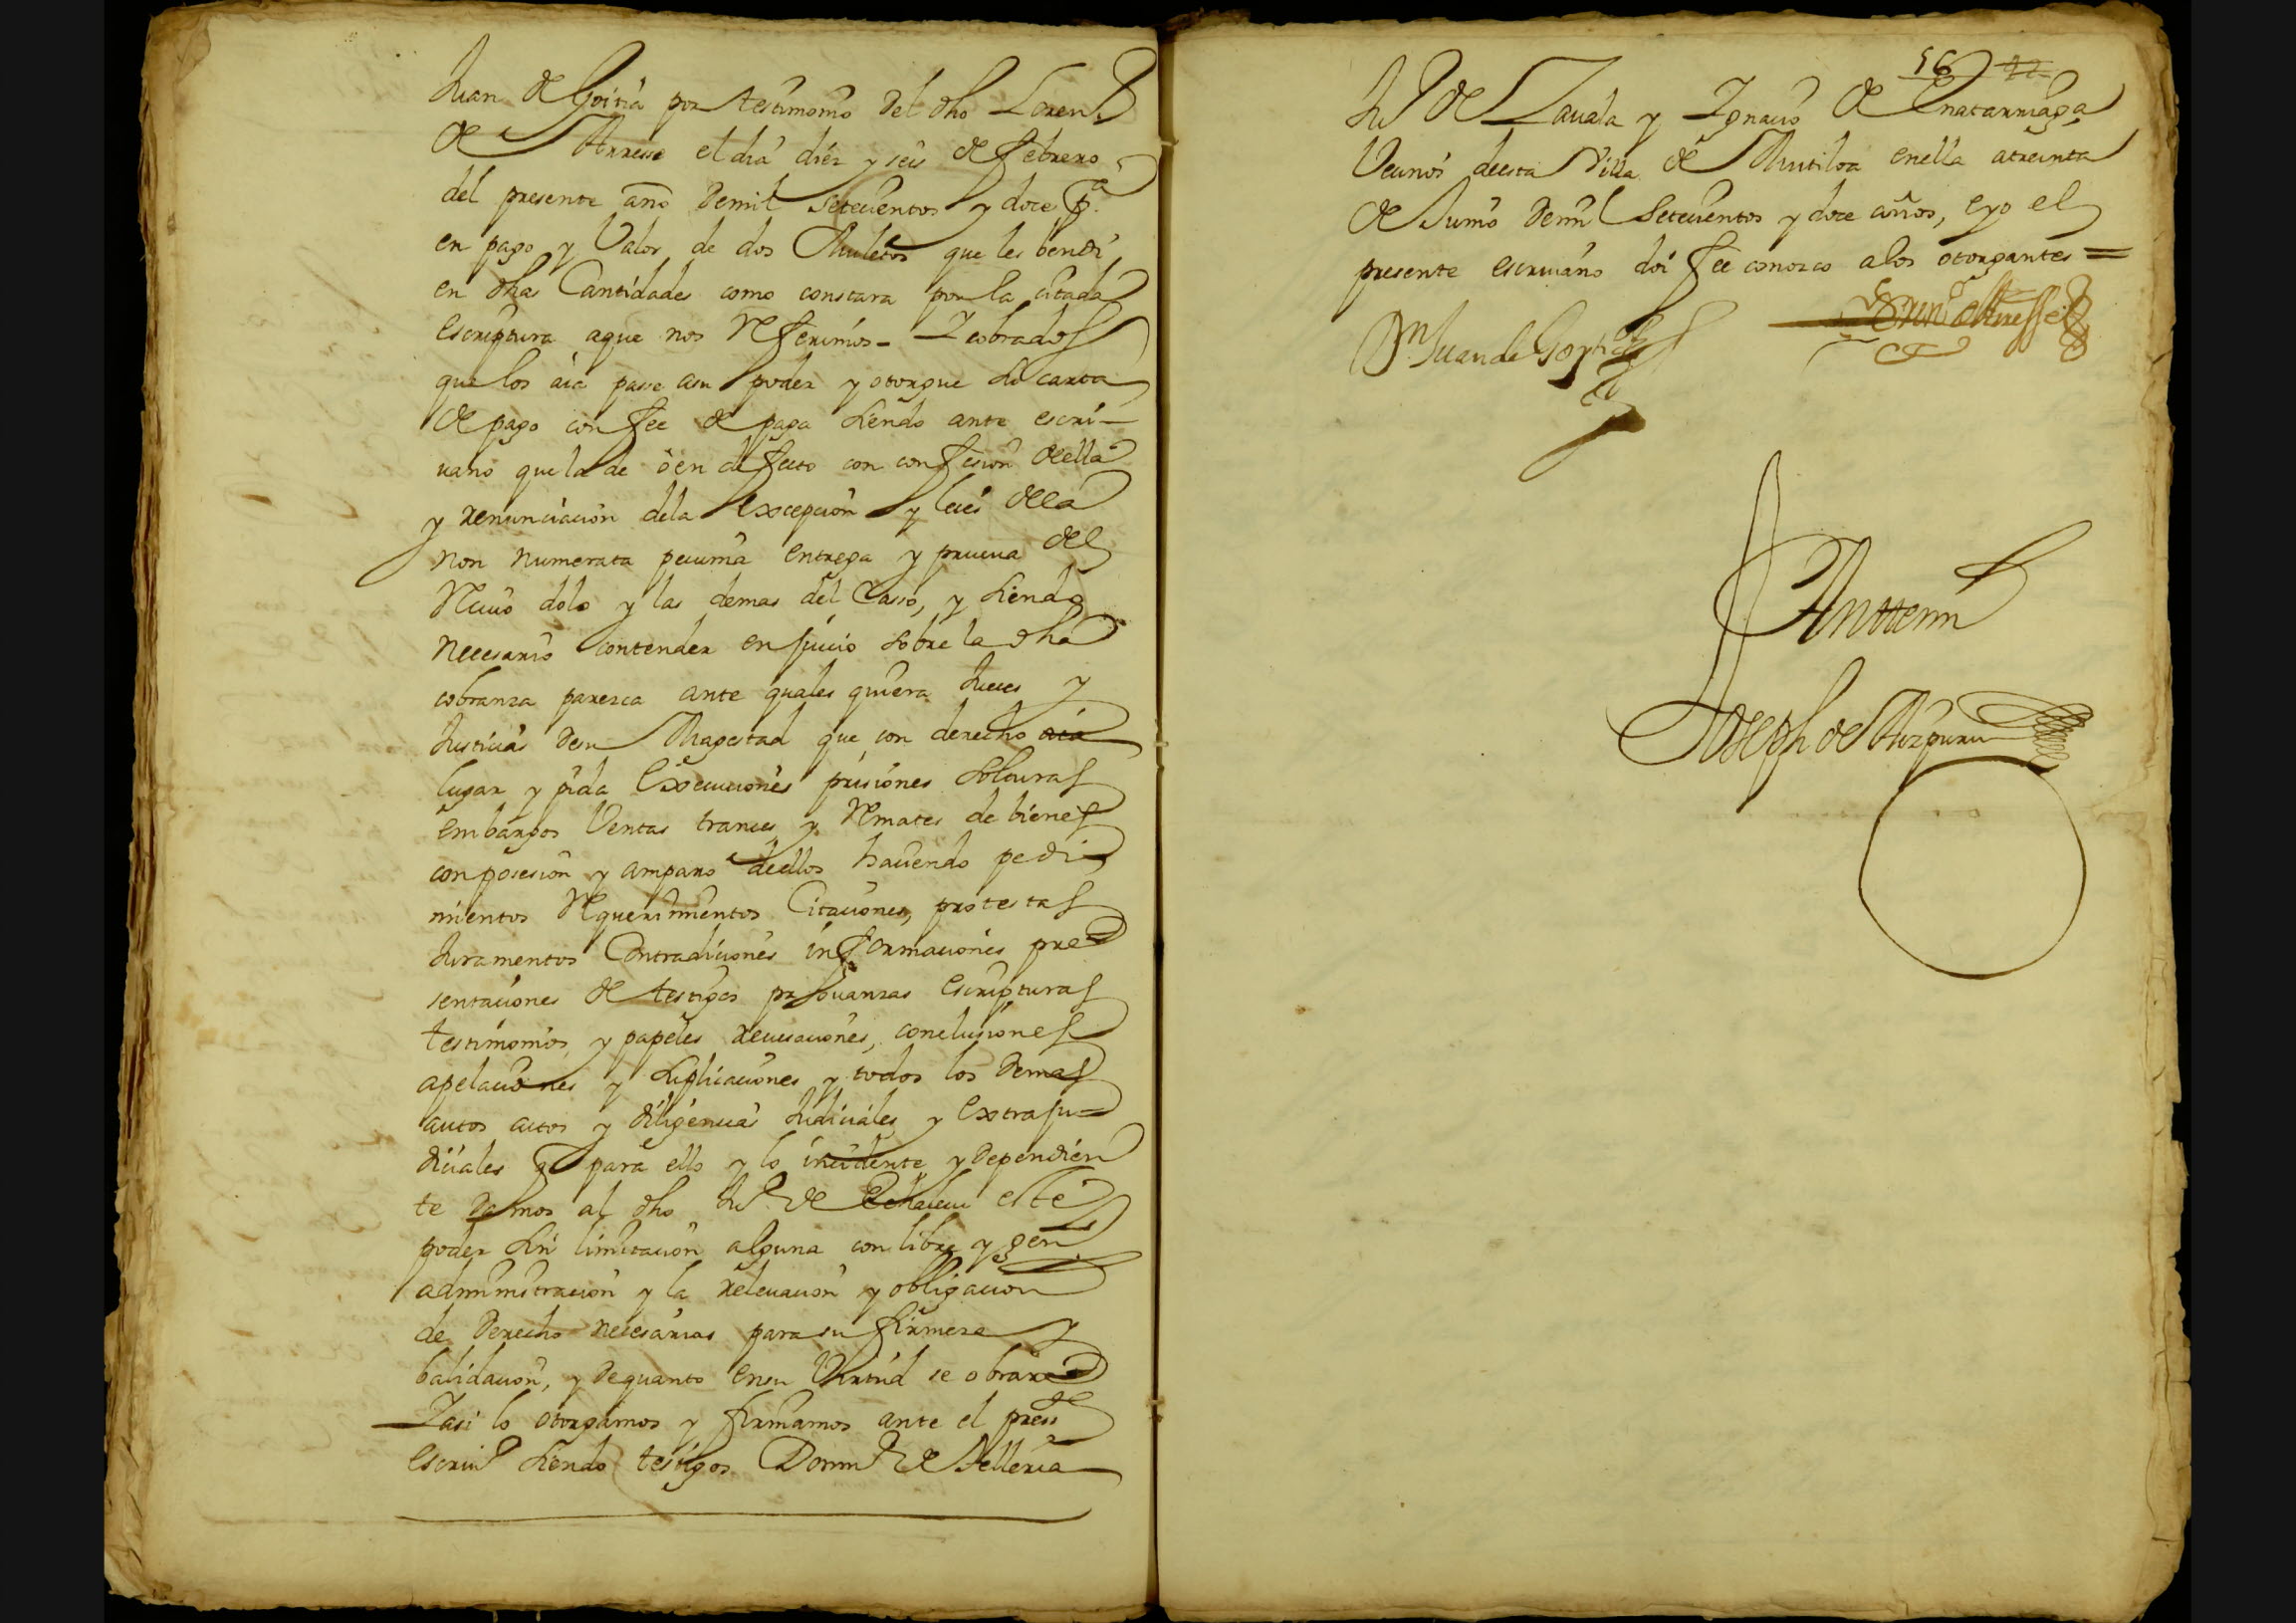 Juan de Goitia por testimonio del dho Loren.
de Arresse el dia diez y seis de febrero
del presente año de mil setecientos y doce
en pago y Valor de dos Muletos que les bendi
en dhas Cantidades como constara por la citada
escriptura a que nos Referimos - I cobrados
que los aia passe a su poder y otorgue su carta
de pago con fee de paga siendo ante escri-
uano que la de o en defecto con confesion de ella
y renunciacion de la excepcion y leies de la
non numerata pecunia entrega y prueua del
Reciuo dolo y las demas del Casso, y siendo
necesario contender en juicio sobre la dha
cobranza parezca ante quales quiera Jueces y
Justicias de su Magestad que con derecho aia
lugar y pida Execuciones prisiones solturas
embargos Ventas trances y Remates de bienes
con posesion y amparo de ellos haciendo pedi-
mientos Requerimientos Citaciones, protestas
Juramentos Contradiciones informaciones pre-
sentaciones de testigos probanzas escripturas
testimonios y papeles recusaciones, conclusiones
apelaciones y suplicaciones y todos los demas
autos actos y diligencias Judiciales y extraju-
diciales q para ello y lo incidente y dependien
te damos al dho Ju. de este
poder sin limitacion alguna con libre y gen
administracion y la releuacion y obligacion
de derecho necesarias para su firmeza y
balidacion, y de quanto en su Virtud se obrare
I asi lo otorgamos y firmamos ante el press.te
escriu.o siendo testigos Domin.o de Telleria
56 42
Ju.o de Zauala y Ignacio de Enatarriaga
Vecinos de esta Villa de Mutiloa en ella a treinta
de Junio de mil Setecientos y doce años, e yo el
presente escriuano doi fee conozco a los otorgantes =
Dn Juan de Goytia
Lorenº de Arresse
Ante mi
Joseph de Aizpuru